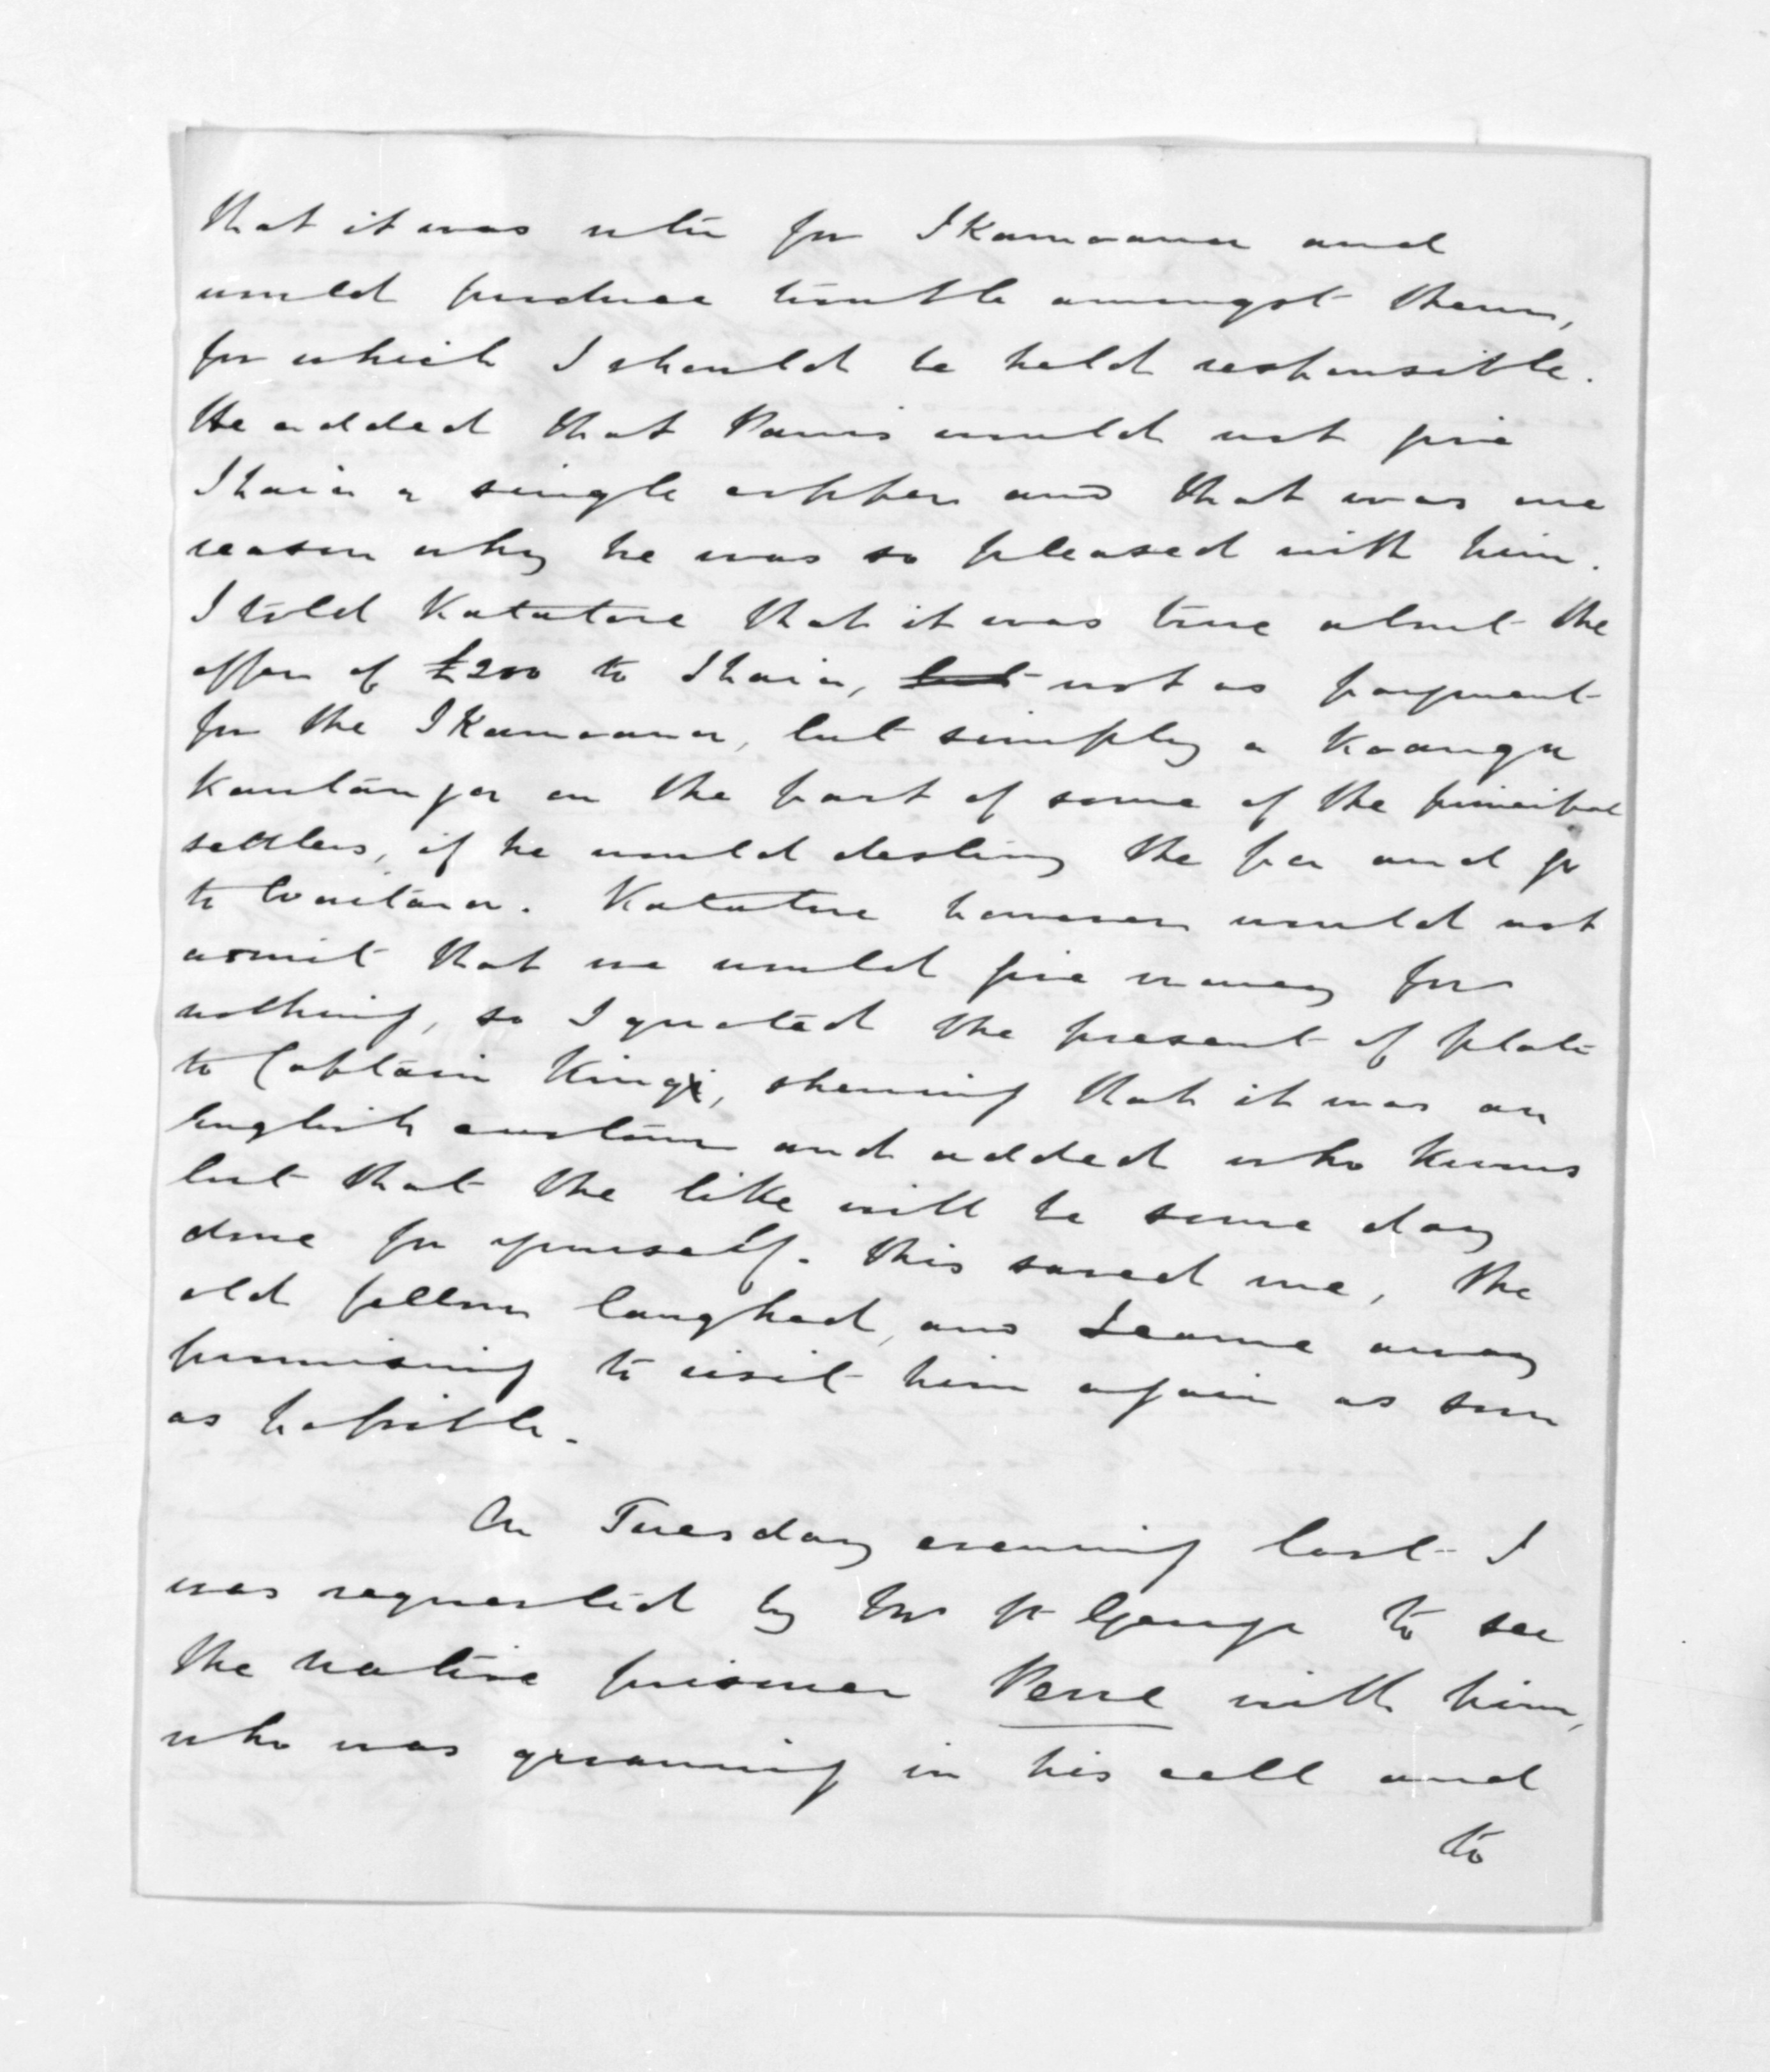 that it was utu for Ikamoana and
would produce trouble amongst them,
for which I should be held responsible.
He added that Parris would not give
Ihaia a single copper and that was one
reason why he was so pleased with him.
I told Katatore that it was true about the
offer of £200 to Ihaia, but not as payment
for the Ikamoana, but simply a
on the part of some of the principal
settlers, if he would destroy the pa and go
to Waitara. Katatore however would not
admit that we would give money for
nothing, so I quoted the present of plate
to Captain King, shewing that it was an
English custom and added who knows
but that the like will be some day
done for yourself. This saved me, the
old fellow laughed, and I came away
promising to visit him again as soon
as possible.
On Tuesday evening last I
was requested by Mr St George to see
the native prisoner with him,
who was groaning in his cell and
to